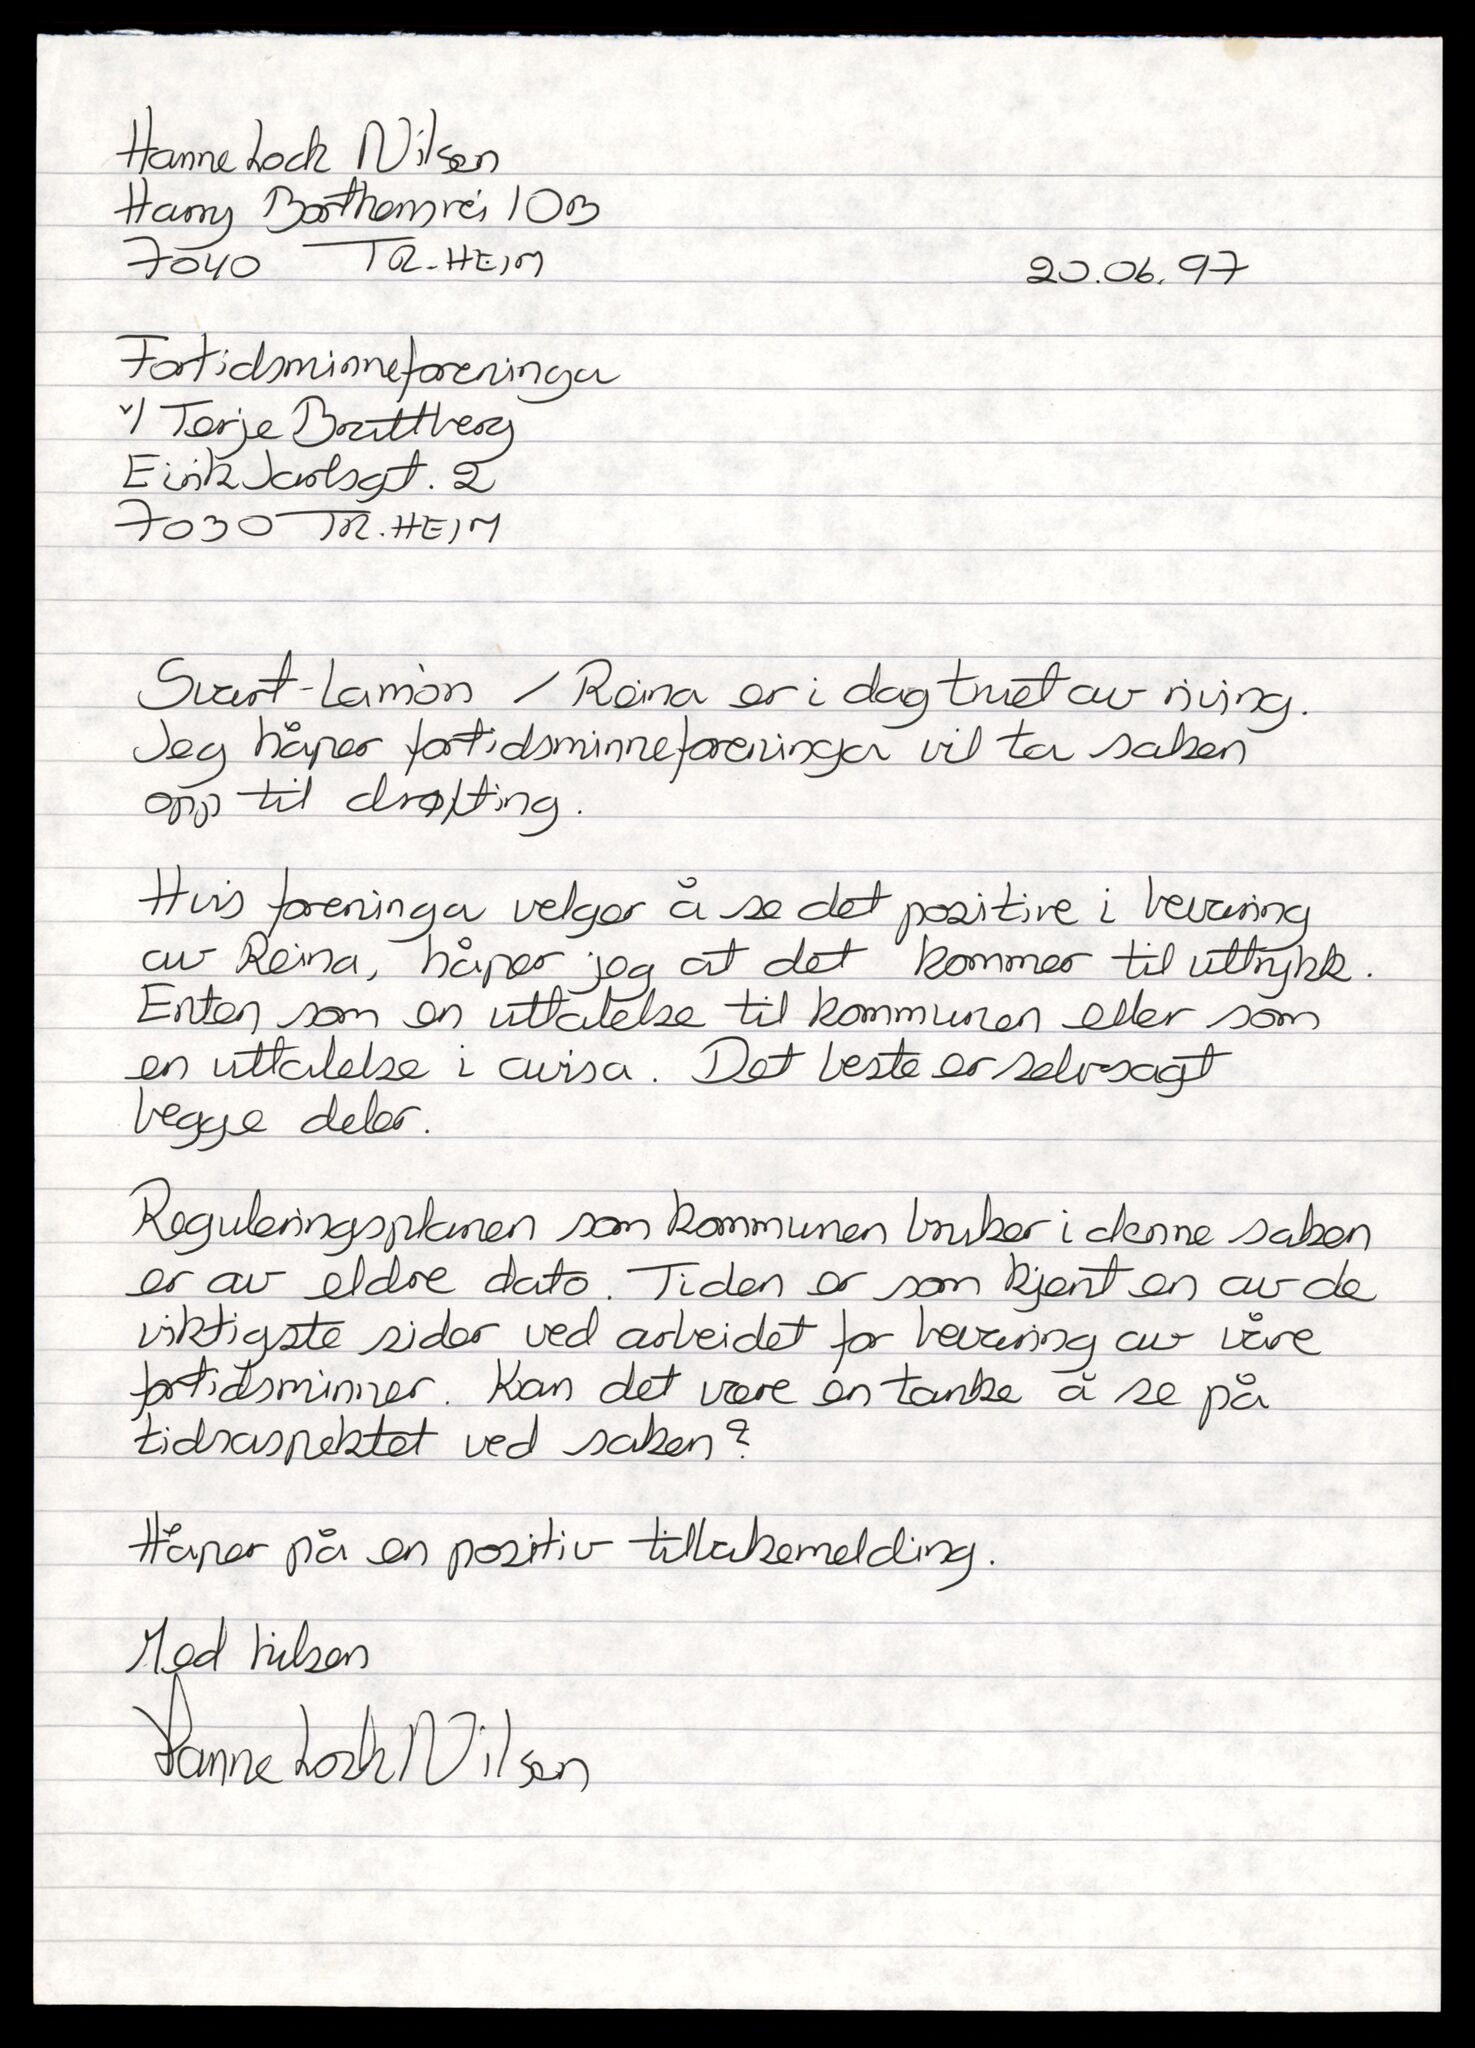 Hanne Lock Nilsen
Harry Borthensvei 10B
7040 TR.HEIM
20.06.97
Fortidsminneforeninga
v/ Terje Brattberg
Eirik Jarlsgt. 2
7030 TR.HEIM
Svart-Lamon / Reina er i dag truet av riving.
Jeg håper fortidsminneforeninga vil ta saken
opp til drøfting.
Hvis foreninga velger å se det positive i bevaring
av Reina, håper jeg at det kommer til uttrykk.
Enten som en uttalelse til kommunen eller som
en uttalelse i avisa. Det beste er selvsagt
begge deler.
Reguleringsplanen som kommunen bruker i denne saken
er av eldre dato. Tiden er som kjent en av de
viktigste sider ved arbeidet for bevaring av våre
fortidsminner. Kan det være en tanke å se på
tidsaspektet ved saken?
Håper på en positiv tilbakemelding.
Med hilsen
Hanne Lock Nilsen